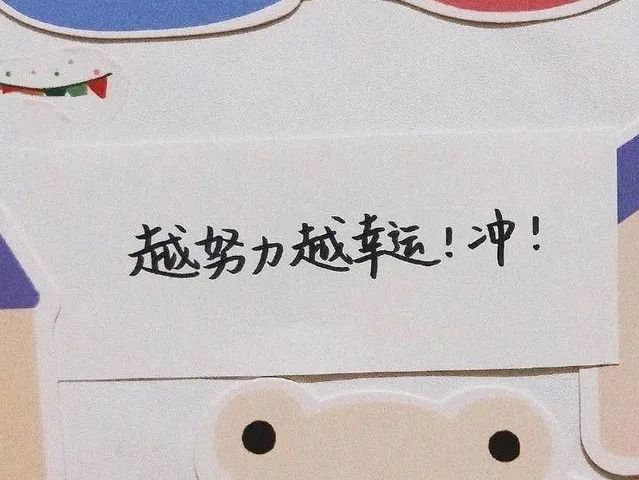 越努力越幸运!冲!